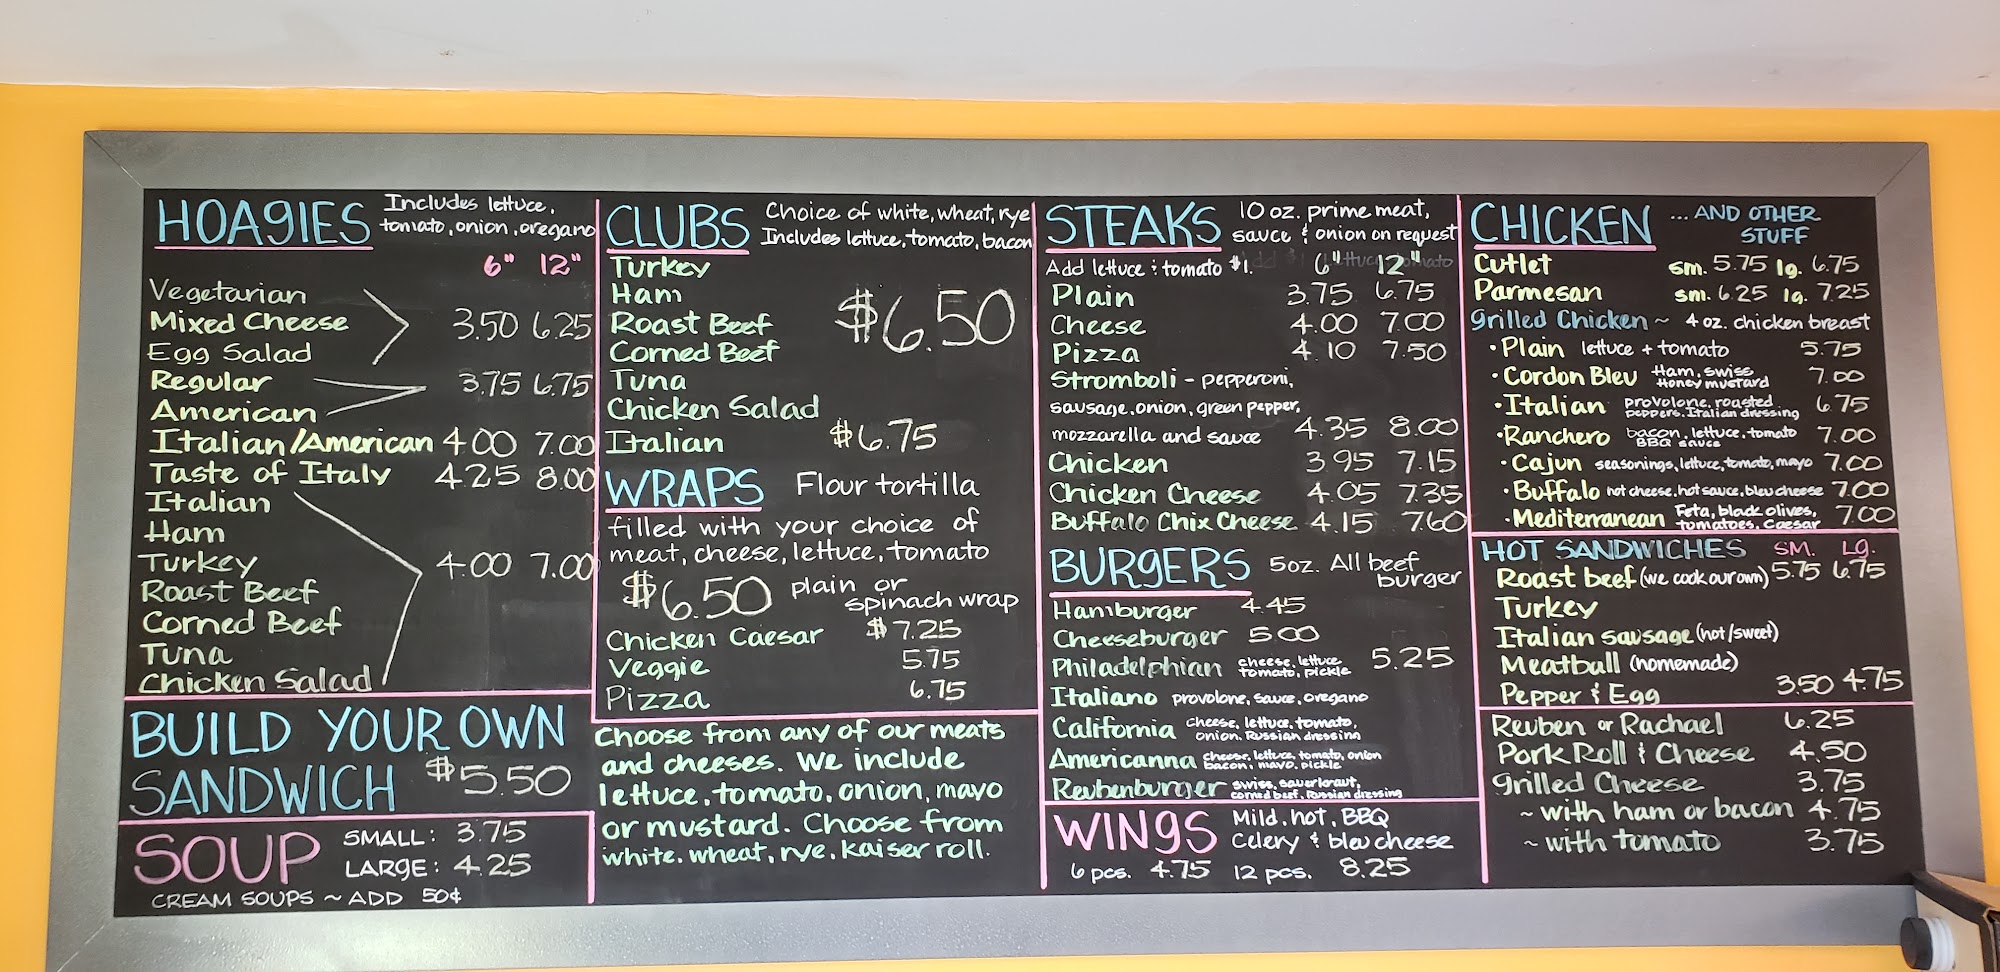 HOAGIES Includes lettuce,
tomato, onion, oregano
6" 12"
Vegetarian
Mixed Cheese 3.50 6.25
Egg Salad
Regular 3.75 6.75
American
Italian/American 4.00 7.00
Taste of Italy 4.25 8.00
Italian
Ham
Turkey 4.00 7.00
Roast Beef
Corned Beef
Tuna
Chicken Salad
BUILD YOUR OWN
SANDWICH $5.50
SOUP SMALL: 3.75
LARGE: 4.25
CREAM SOUPS ~ ADD 50¢
CLUBS Choice of white, wheat, rye
Includes lettuce, tomato, bacon
Turkey
Ham $6.50
Roast Beef
Corned Beef
Tuna
Chicken Salad
Italian $6.75
WRAPS Flour tortilla
filled with your choice of
meat, cheese, lettuce, tomato
$6.50 plain or
spinach wrap
Chicken Caesar $7.25
Veggie 5.75
Pizza 6.75
Choose from any of our meats
and cheeses. We include
lettuce, tomato, onion, mayo
or mustard. Choose from
white, wheat, rye, kaiser roll.
STEAKS 10 oz. prime meat,
sauce & onion on request
Add lettuce & tomato $1. 6" 12"
Plain 3.75 6.75
Cheese 4.00 7.00
Pizza 4.10 7.50
Stromboli - pepperoni,
sausage, onion, green pepper,
mozzarella and sauce 4.35 8.00
Chicken 3.95 7.15
Chicken Cheese 4.05 7.35
Buffalo Chix Cheese 4.15 7.60
BURGERS 5oz. All beef
burger
Hamburger 4.45
Cheeseburger 5.00
Philadelphian cheese, lettuce
tomato, pickle 5.25
Italiano provolone, sauce, oregano
California cheese, lettuce, tomato,
onion, Russian dressing
Americanna cheese, lettuce, tomato, onion
bacon, mayo, pickle
Reubenburger swiss, sauerkraut,
corned beef, Russian dressing
WINGS Mild, hot, BBQ
Celery & bleu cheese
6 pcs. 4.75 12 pcs. 8.25
CHICKEN ... AND OTHER
STUFF
Cutlet sm. 5.75 lg. 6.75
Parmesan sm. 6.25 lg. 7.25
Grilled Chicken ~ 4 oz. chicken breast
• Plain lettuce + tomato 5.75
• Cordon Bleu Ham, swiss
Honey mustard 7.00
• Italian provolone, roasted
peppers, Italian dressing 6.75
• Ranchero bacon, lettuce, tomato
BBQ sauce 7.00
• Cajun seasonings, lettuce, tomato, mayo 7.00
• Buffalo hot cheese, hot sauce, bleu cheese 7.00
• Mediterranean Feta, black olives,
tomatoes, Caesar 7.00
HOT SANDWICHES SM. Lg.
Roast beef (we cook our own) 5.75 6.75
Turkey
Italian sausage (hot/sweet)
Meatball (homemade)
Pepper & Egg 3.50 4.75
Reuben or Rachael 6.25
Pork Roll & Cheese 4.50
Grilled Cheese 3.75
~ with ham or bacon 4.75
~ with tomato 3.75